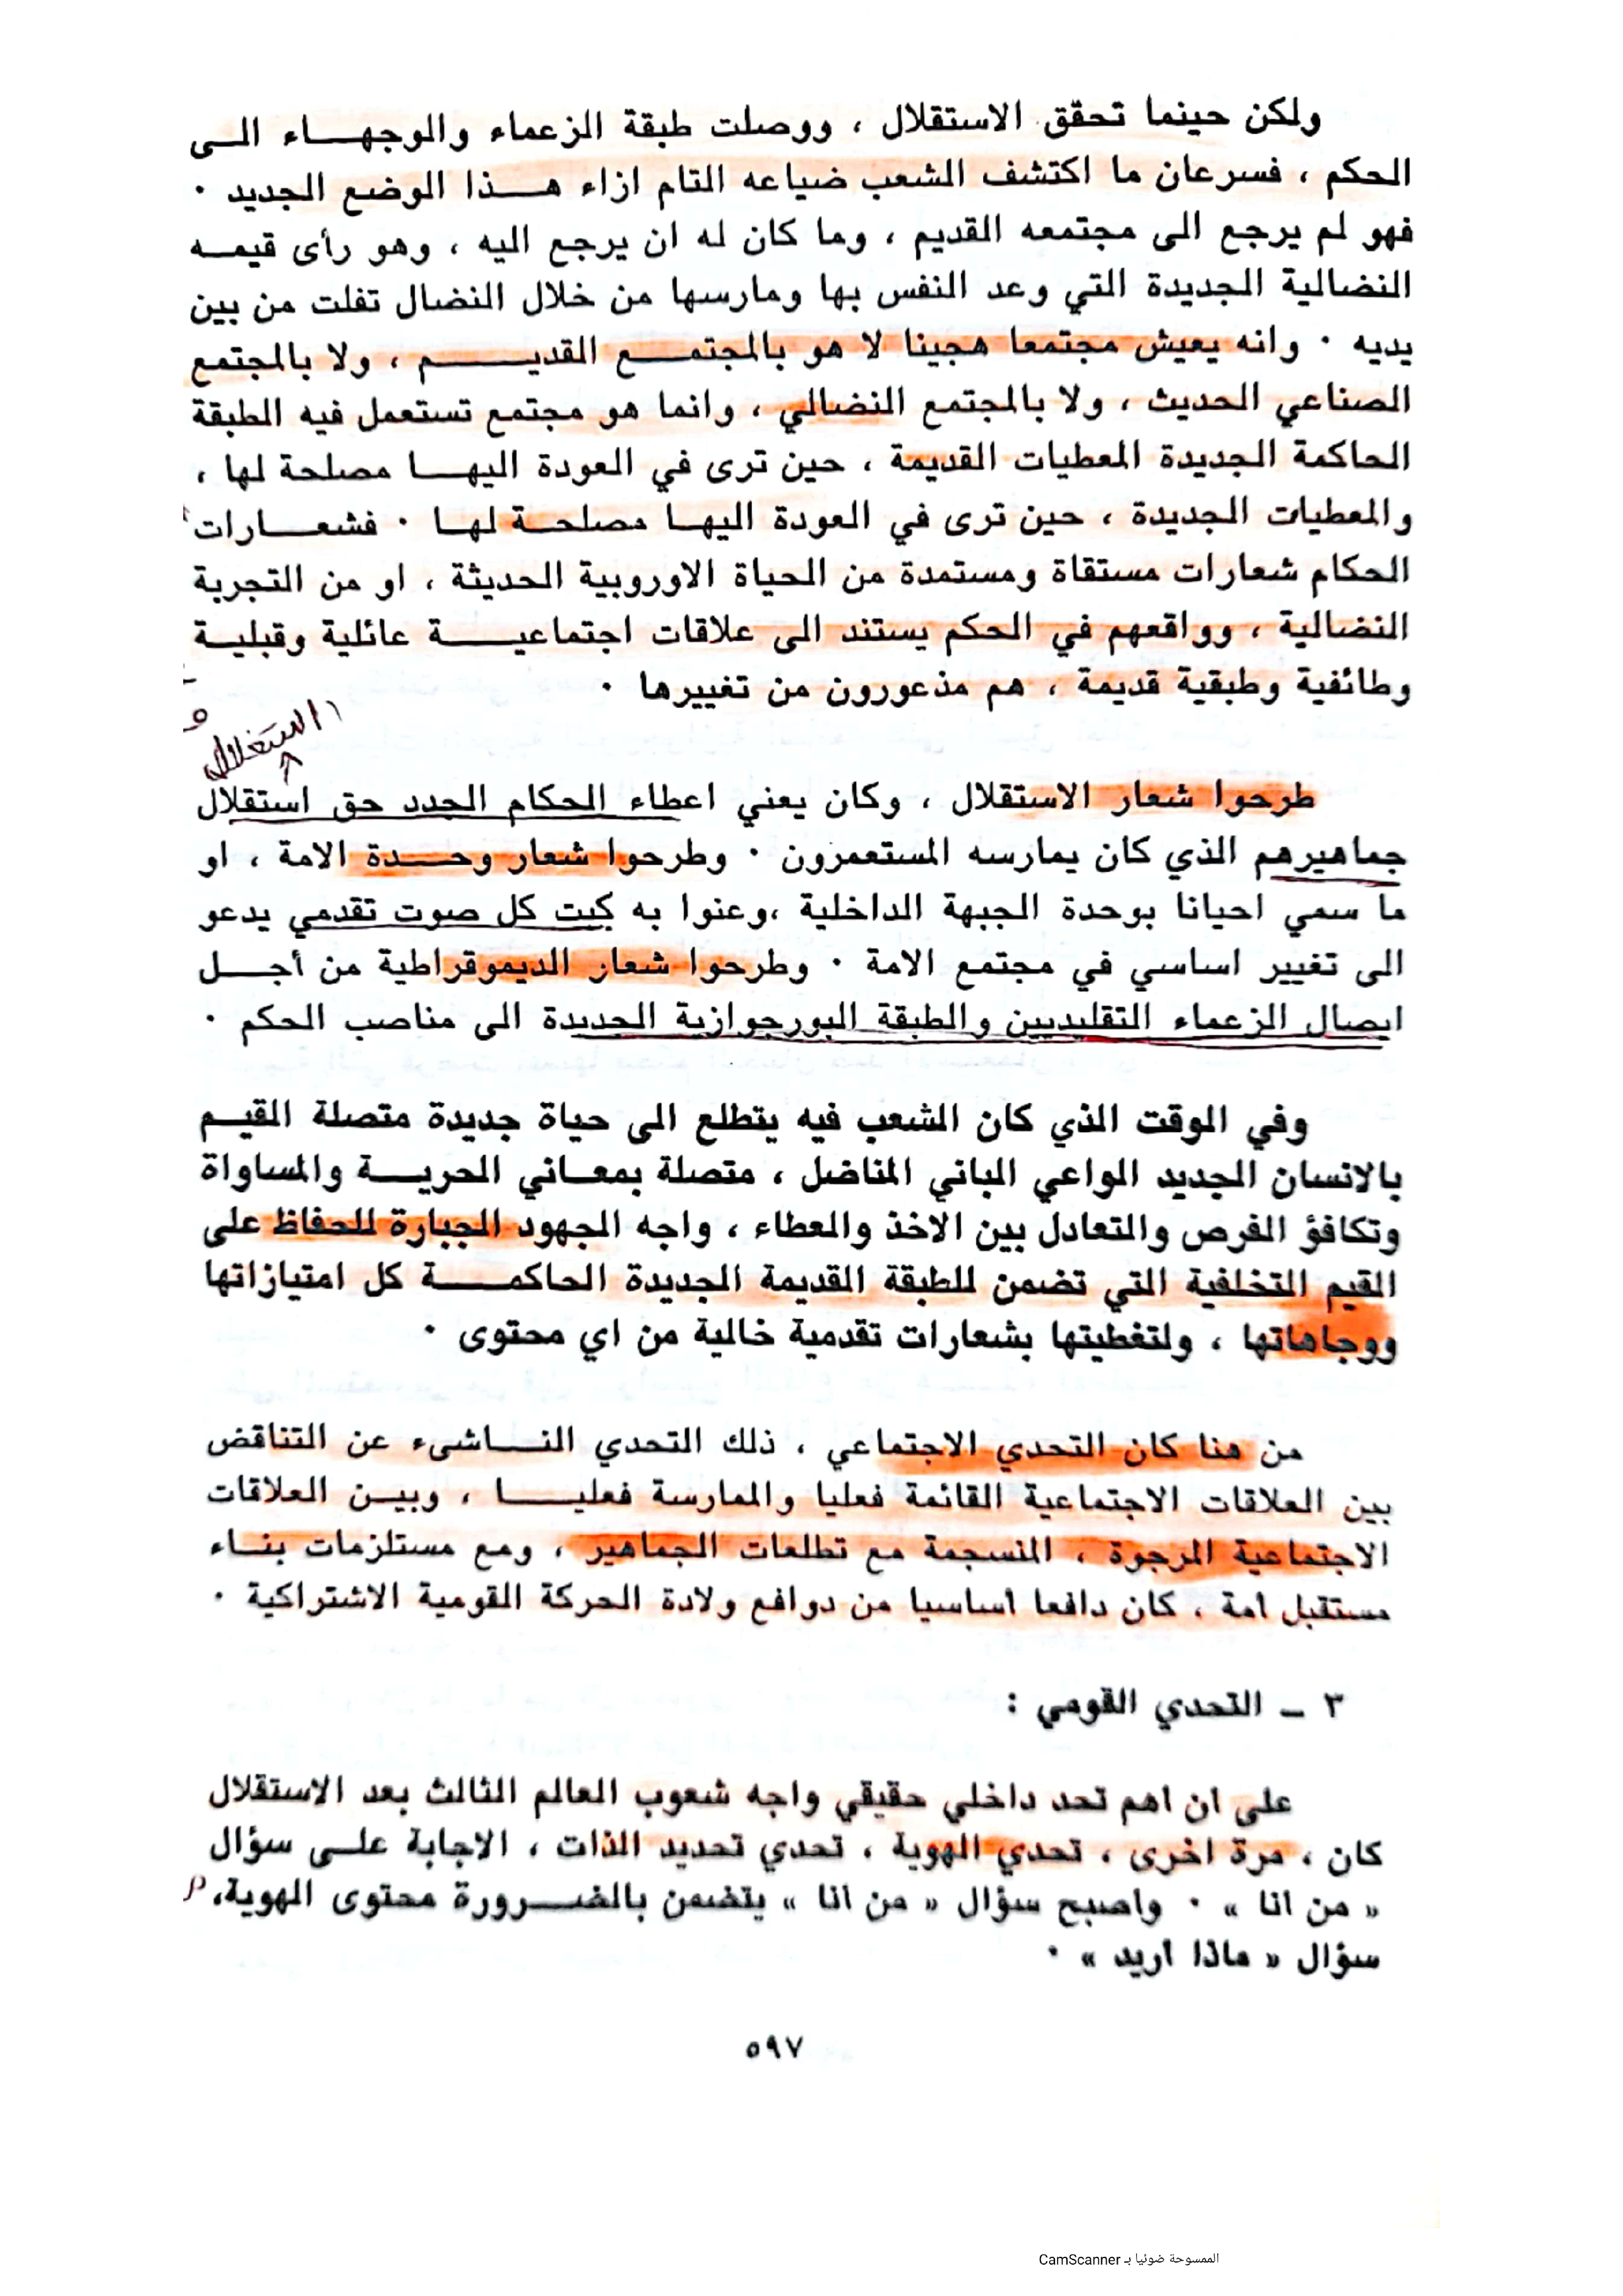 ولكن حينما تحقق الاستقلال ، ووصلت طبقة الزعماء والوجهاء الى
الحكم ، فسرعان ما اكتشف الشعب ضياعه التام ازاء هذا الوضع الجديد ٠
فهو لم يرجع الى مجتمعه القديم ، وما كان له ان يرجع اليه ، وهو رأى قيمه
النضالية الجديدة التي وعد النفس بها ومارسها من خلال النضال تفلت من بين
يديه ٠ وانه يعيش مجتمعا هجينا لا هو بالمجتمع القديم ، ولا بالمجتمع
الصناعي الحديث ، ولا بالمجتمع النضالي ، وانما هو مجتمع تستعمل فيه الطبقة
الحاكمة الجديدة المعطيات القديمة ، حين ترى في العودة اليها مصلحة لها ،
والمعطيات الجديدة ، حين ترى في العودة اليها مصلحة لها ٠ فشعارات
الحكام شعارات مستقاة ومستمدة من الحياة الاوروبية الحديثة ، او من التجربة
النضالية ، وواقعهم في الحكم يستند الى علاقات اجتماعية عائلية وقبلية
وطائفية وطبقية قديمة ، هم مذعورون من تغييرها ٠
استغلال
طرحوا شعار الاستقلال ، وكان يعني اعطاء الحكام الجدد حق استقلال
جماهيرهم الذي كان يمارسه المستعمرون ٠ وطرحوا شعار وحدة الامة ، او
ما سمي احيانا بوحدة الجبهة الداخلية ،وعنوا به كبت كل صوت تقدمي يدعو
الى تغيير اساسي في مجتمع الامة ٠ وطرحوا شعار الديموقراطية من أجل
ايصال الزعماء التقليديين والطبقة البورجوازية الجديدة الى مناصب الحكم ٠
وفي الوقت الذي كان الشعب فيه يتطلع الى حياة جديدة متصلة القيم
بالانسان الجديد الواعي الباني المناضل ، متصلة بمعاني الحرية والمساواة
وتكافؤ الفرص والتعادل بين الاخذ والعطاء ، واجه الجهود الجبارة للحفاظ على
القيم التخلفية التي تضمن للطبقة القديمة الجديدة الحاكمة كل امتيازاتها
ووجاهاتها ، ولتغطيتها بشعارات تقدمية خالية من اي محتوى ٠
من هنا كان التحدي الاجتماعي ، ذلك التحدي الناشىء عن التناقض
بين العلاقات الاجتماعية القائمة فعليا والممارسة فعليا ، وبين العلاقات
الاجتماعية المرجوة ، المنسجمة مع تطلعات الجماهير ، ومع مستلزمات بناء
مستقبل امة ، كان دافعا اساسيا من دوافع ولادة الحركة القومية الاشتراكية ٠
٣ ــ التحدي القومي :
على ان اهم تحد داخلي حقيقي واجه شعوب العالم الثالث بعد الاستقلال
كان ، مرة اخرى ، تحدي الهوية ، تحدي تحديد الذات ، الاجابة على سؤال
« من انا » ٠ واصبح سؤال « من انا » يتضمن بالضرورة محتوى الهوية،
سؤال « ماذا أريد » ٠
٥٩٧
الممسوحة ضوئيا بـ CamScanner